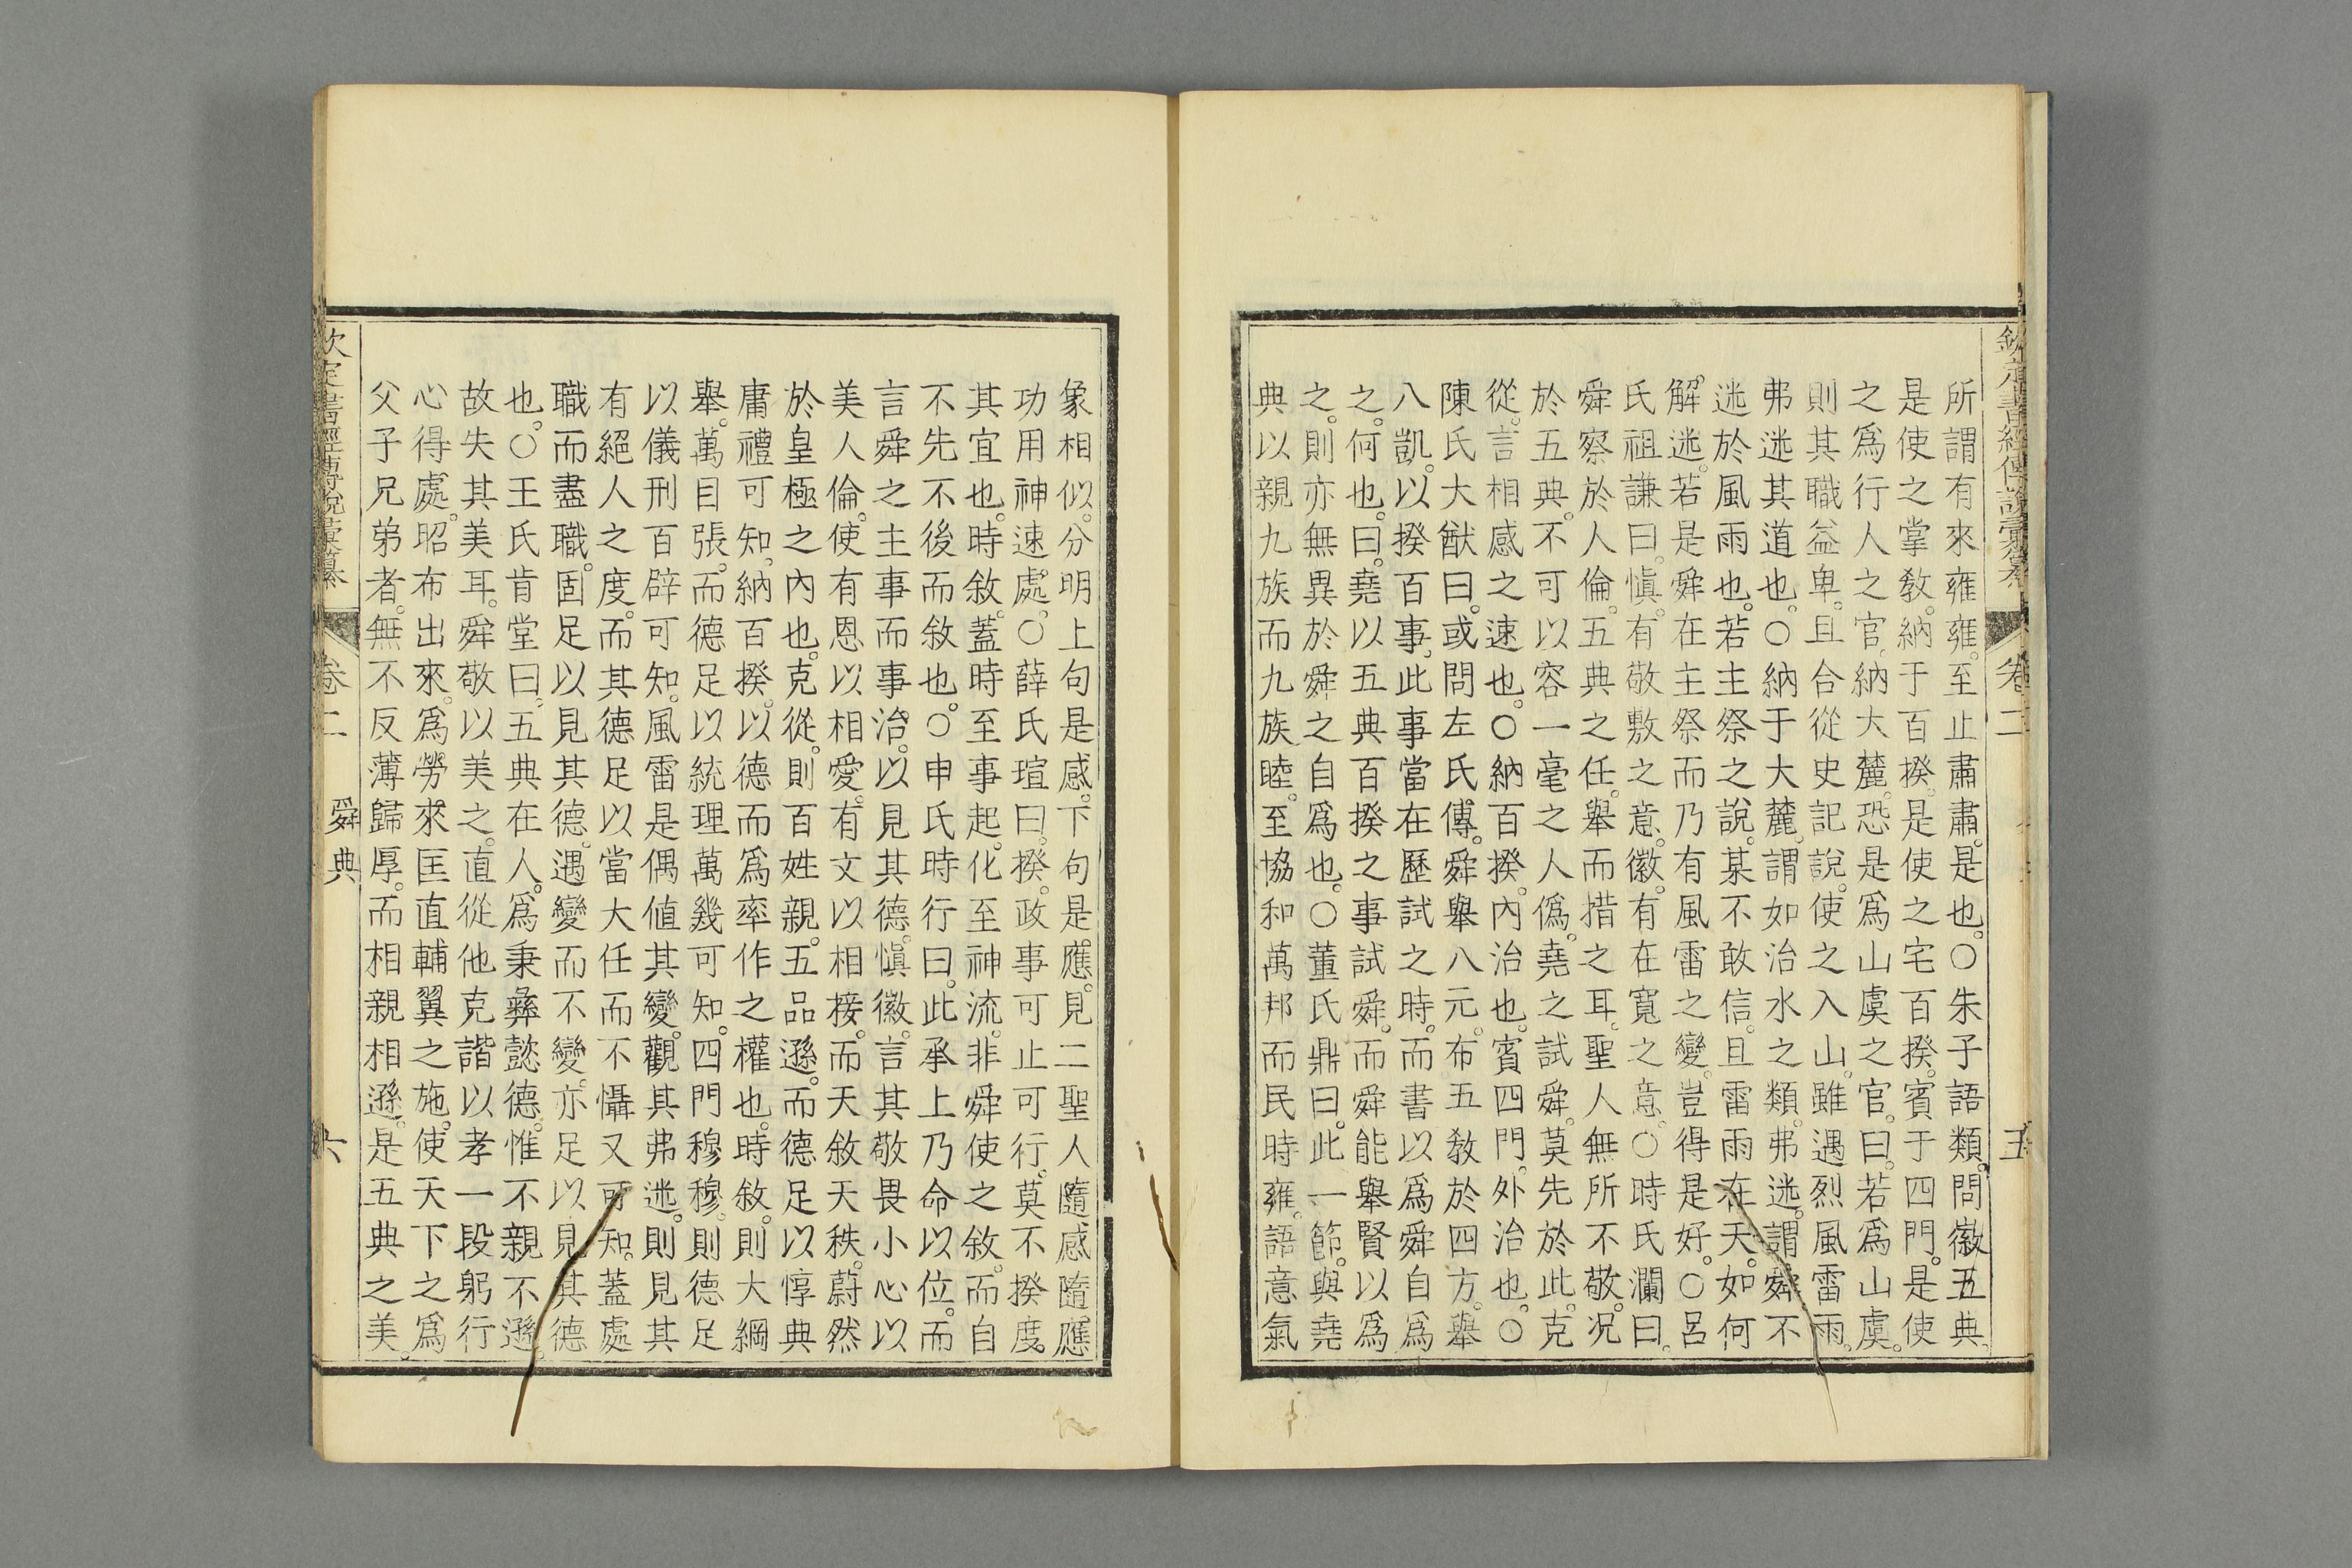 欽定書經傳說彙纂 卷二 五
所謂有來雍雍。至止肅肅。是也。○朱子語類。問徽五典。
是使之掌教。納于百揆。是使之宅百揆。賓于四門。是使
之爲行人之官。納大麓。恐是爲山虞之官。曰。若爲山虞。
則其職益卑。且合從史記說。使之入山。雖遇烈風雷雨。
弗迷其道也。○納于大麓。謂如治水之類。弗迷。謂舜不
迷於風雨也。若主祭之說。某不敢信。且雷雨在天。如何
解迷。若是舜在主祭而乃有風雷之變。豈得是好。○呂
氏祖謙曰。愼。有敬敷之意。徽。有在寬之意。○時氏瀾曰。
舜察於人倫。五典之任。舉而措之耳。聖人無所不敬。况
於五典。不可以容一毫之人僞。堯之試舜。莫先於此。克
從。言相感之速也。○納百揆。內治也。賓四門。外治也。○
陳氏大猷曰。或問左氏傳。舜舉八元。布五敎於四方。舉
八凱。以揆百事。此事當在歷試之時。而書以爲舜自爲
之。何也。曰。堯以五典百揆之事試舜。而舜能舉賢以爲
之。則亦無異於舜之自爲也。○董氏鼎曰。此一節。與堯
典以親九族而九族睦。至協和萬邦而民時雍。語意氣
象相似。分明上句是感。下句是應。見二聖人隨感隨應
功用神速。處。○薛氏瑄曰。揆。政事可止可行。莫不揆度。
其宜也。時敘。蓋時至事起。化至神流。非舜使之敘。而自
不先不後而敘也。○申氏時行曰。此承上乃命以位。而
言舜之主事而事治。以見其德。愼徽。言其敬畏小心以
美人倫。使有恩以相愛。有文以相接。而天敘天秩。蔚然
於皇極之內也。克從。則百姓親。五品遜。而德足以惇典
庸禮可知。納百揆。以德而爲率作之權也。時敘。則大綱
舉。萬目張。而德足以統理萬幾可知。四門穆穆。則德足
以儀刑百辟可知。風雷是偶値其變。觀其弗迷。則見其
有絕人之度。而其德足以當大任而不懾又可知。蓋處
職而盡職。固足以見其德。遇變而不變。亦足以見其德
也。○王氏肯堂曰。五典在人。爲秉彝懿德。惟不親不遜。
故失其美耳。舜敬以美之。直從他克諧以孝一段躬行
心得處。昭布出來。爲勞來匡直輔翼之施。使天下之爲
父子兄弟者。無不反薄歸厚。而相親相遜。是五典之美。
欽定書經傳說彙纂 卷二 舜典 六